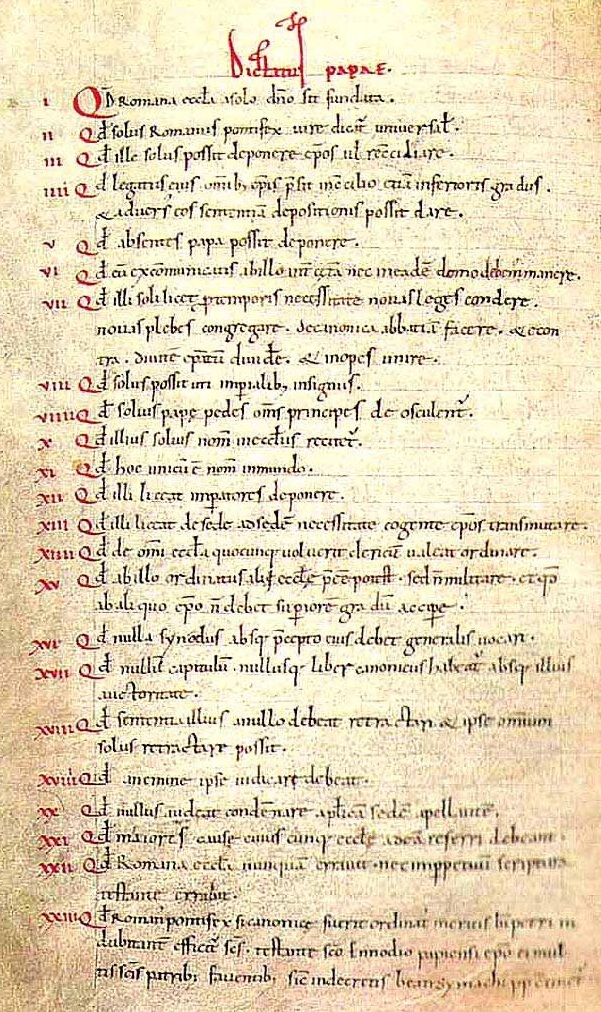 Dictatus papae.
i Qd Romana eccła a solo dño sit fundata.
ii Qd solus Romanus pontifex iure dicat᷑ universał.
iii Qd ille solus possit deponere ep̄os uł reconciliare.
iiii Qd legatus eius om̄ib; ep̄is p̄sit in concilio etiā inferioris gradus.
& adversus eos sententiā depositionis possit dare.
v Qd absentes papa possit deponere.
vi Qd cū excomunicatis ab illo int̄ cet̄a nec in eadē domo debem᷑ manere.
vii Qd illi soli licet p̄ temporis necessitate novas leges condere.
novas plebes congregare. de canonica abbatiā facere. & econ
tra. divitē ep̄atū divide. & inopes unire.
viii Qd solus possit uti imp̄ialib; insigniis.
viiii Qd solius papę pedes om̄s principes deosculent᷑.
x Qd illius solius nom̄ in ecclesiis recitet᷑.
xi Qd hoc unicū ē nom̄ in mundo.
xii Qd illi liceat imp̄atores deponere.
xiii Qd illi liceat de sede ad sedē necessitate cogente ep̄os transmutare.
xiiii Qd de om̄i eccła quocunq; voluerit clericū valeat ordinare.
xv Qd ab illo ordinatus alii ecclę p̄ee potest. sed ñ militare. et qđ
ab aliquo ep̄o ñ debet sup̄iorē gradū accipe.
xvi Qd nulla synodus absq; p̄cepto eius debet generalis vocari.
xvii Qd nullū capitulū. nullusq; liber canonicus habeat᷑ absq; illius
auctoritate.
xviii Qd sententia illius a nullo debeat retractari & ipse omnium
solus retractare possit.
xviiii Qd a nemine ipse iudicare debeat.
xx Qd nullus audeat condēnare ap̄licā sedē apellantē.
xxi Qd maiores cause cuiuscunq; ecclę ad eā referri debeant.
xxii Qd Romana eccła nunquā erravit. nec imp̄petuū scriptura
testante errabit.
xxiii Qd Roman᷒ pontifex si canonice fuerit ordinat᷒ meritis b̄i petri in
dubitant̄ effici᷑ sc̄s. testante sc̄o Ennodio papiensi ep̄o ei mul
tis sc̄is patrib; faventib; sic in decretis beati symachi pp contine᷑